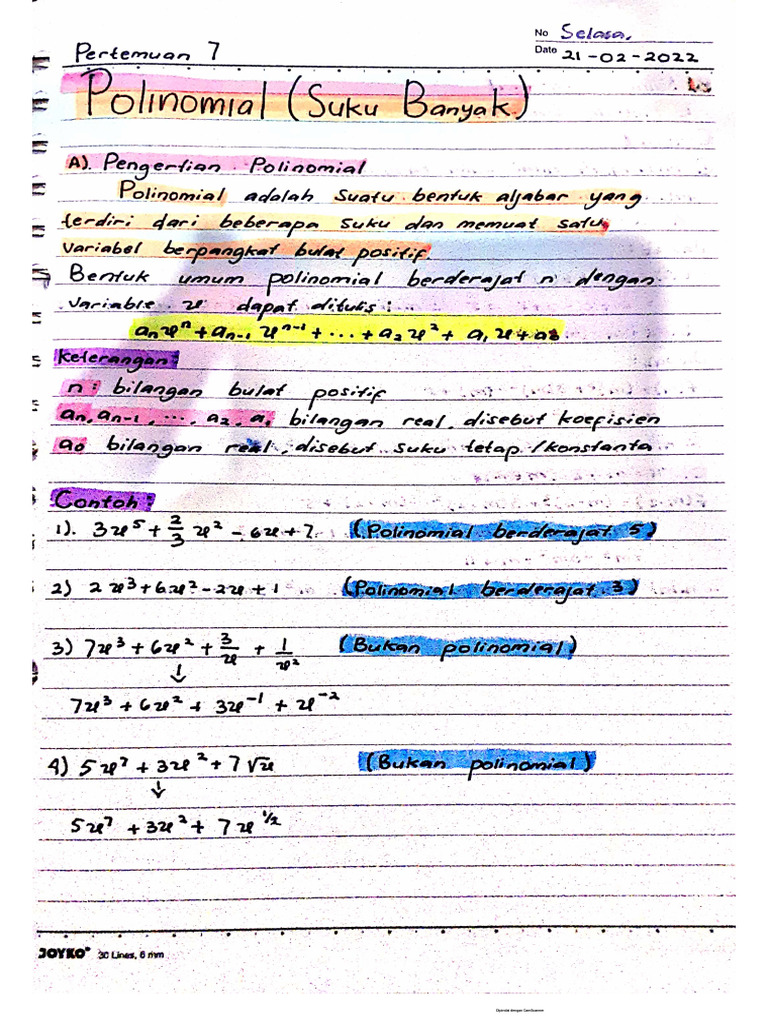 No Selasa,
Pertemuan 7
Date 21-02-2022
Polinomial (Suku Banyak)
A). Pengertian Polinomial
Polinomial adalah suatu bentuk aljabar yang
terdiri dari beberapa suku dan memuat satu
variabel berpangkat bulat positif.
Bentuk umum polinomial berderajat n dengan
variable x dapat ditulis :
aₙxⁿ + aₙ₋₁ xⁿ⁻¹ + ... + a₂x² + a₁x + a₀
Keterangan:
n : bilangan bulat positif
aₙ, aₙ₋₁, ..., a₂, a₁ bilangan real, disebut koefisien
a₀ bilangan real, disebut suku tetap / konstanta
Contoh :
1). 3x⁵ + 2/3 x² - 6x + 7 (Polinomial berderajat 5)
2) 2x³ + 6x² - 2x + 1 (Polinomial berderajat 3)
3) 7x³ + 6x² + 3/x + 1/x² (Bukan polinomial)
↓
7x³ + 6x² + 3x⁻¹ + x⁻²
4) 5x⁷ + 3x² + 7√x (Bukan polinomial)
↓
5x⁷ + 3x² + 7x^1/2
JOYKO® 30 Lines, 6 mm